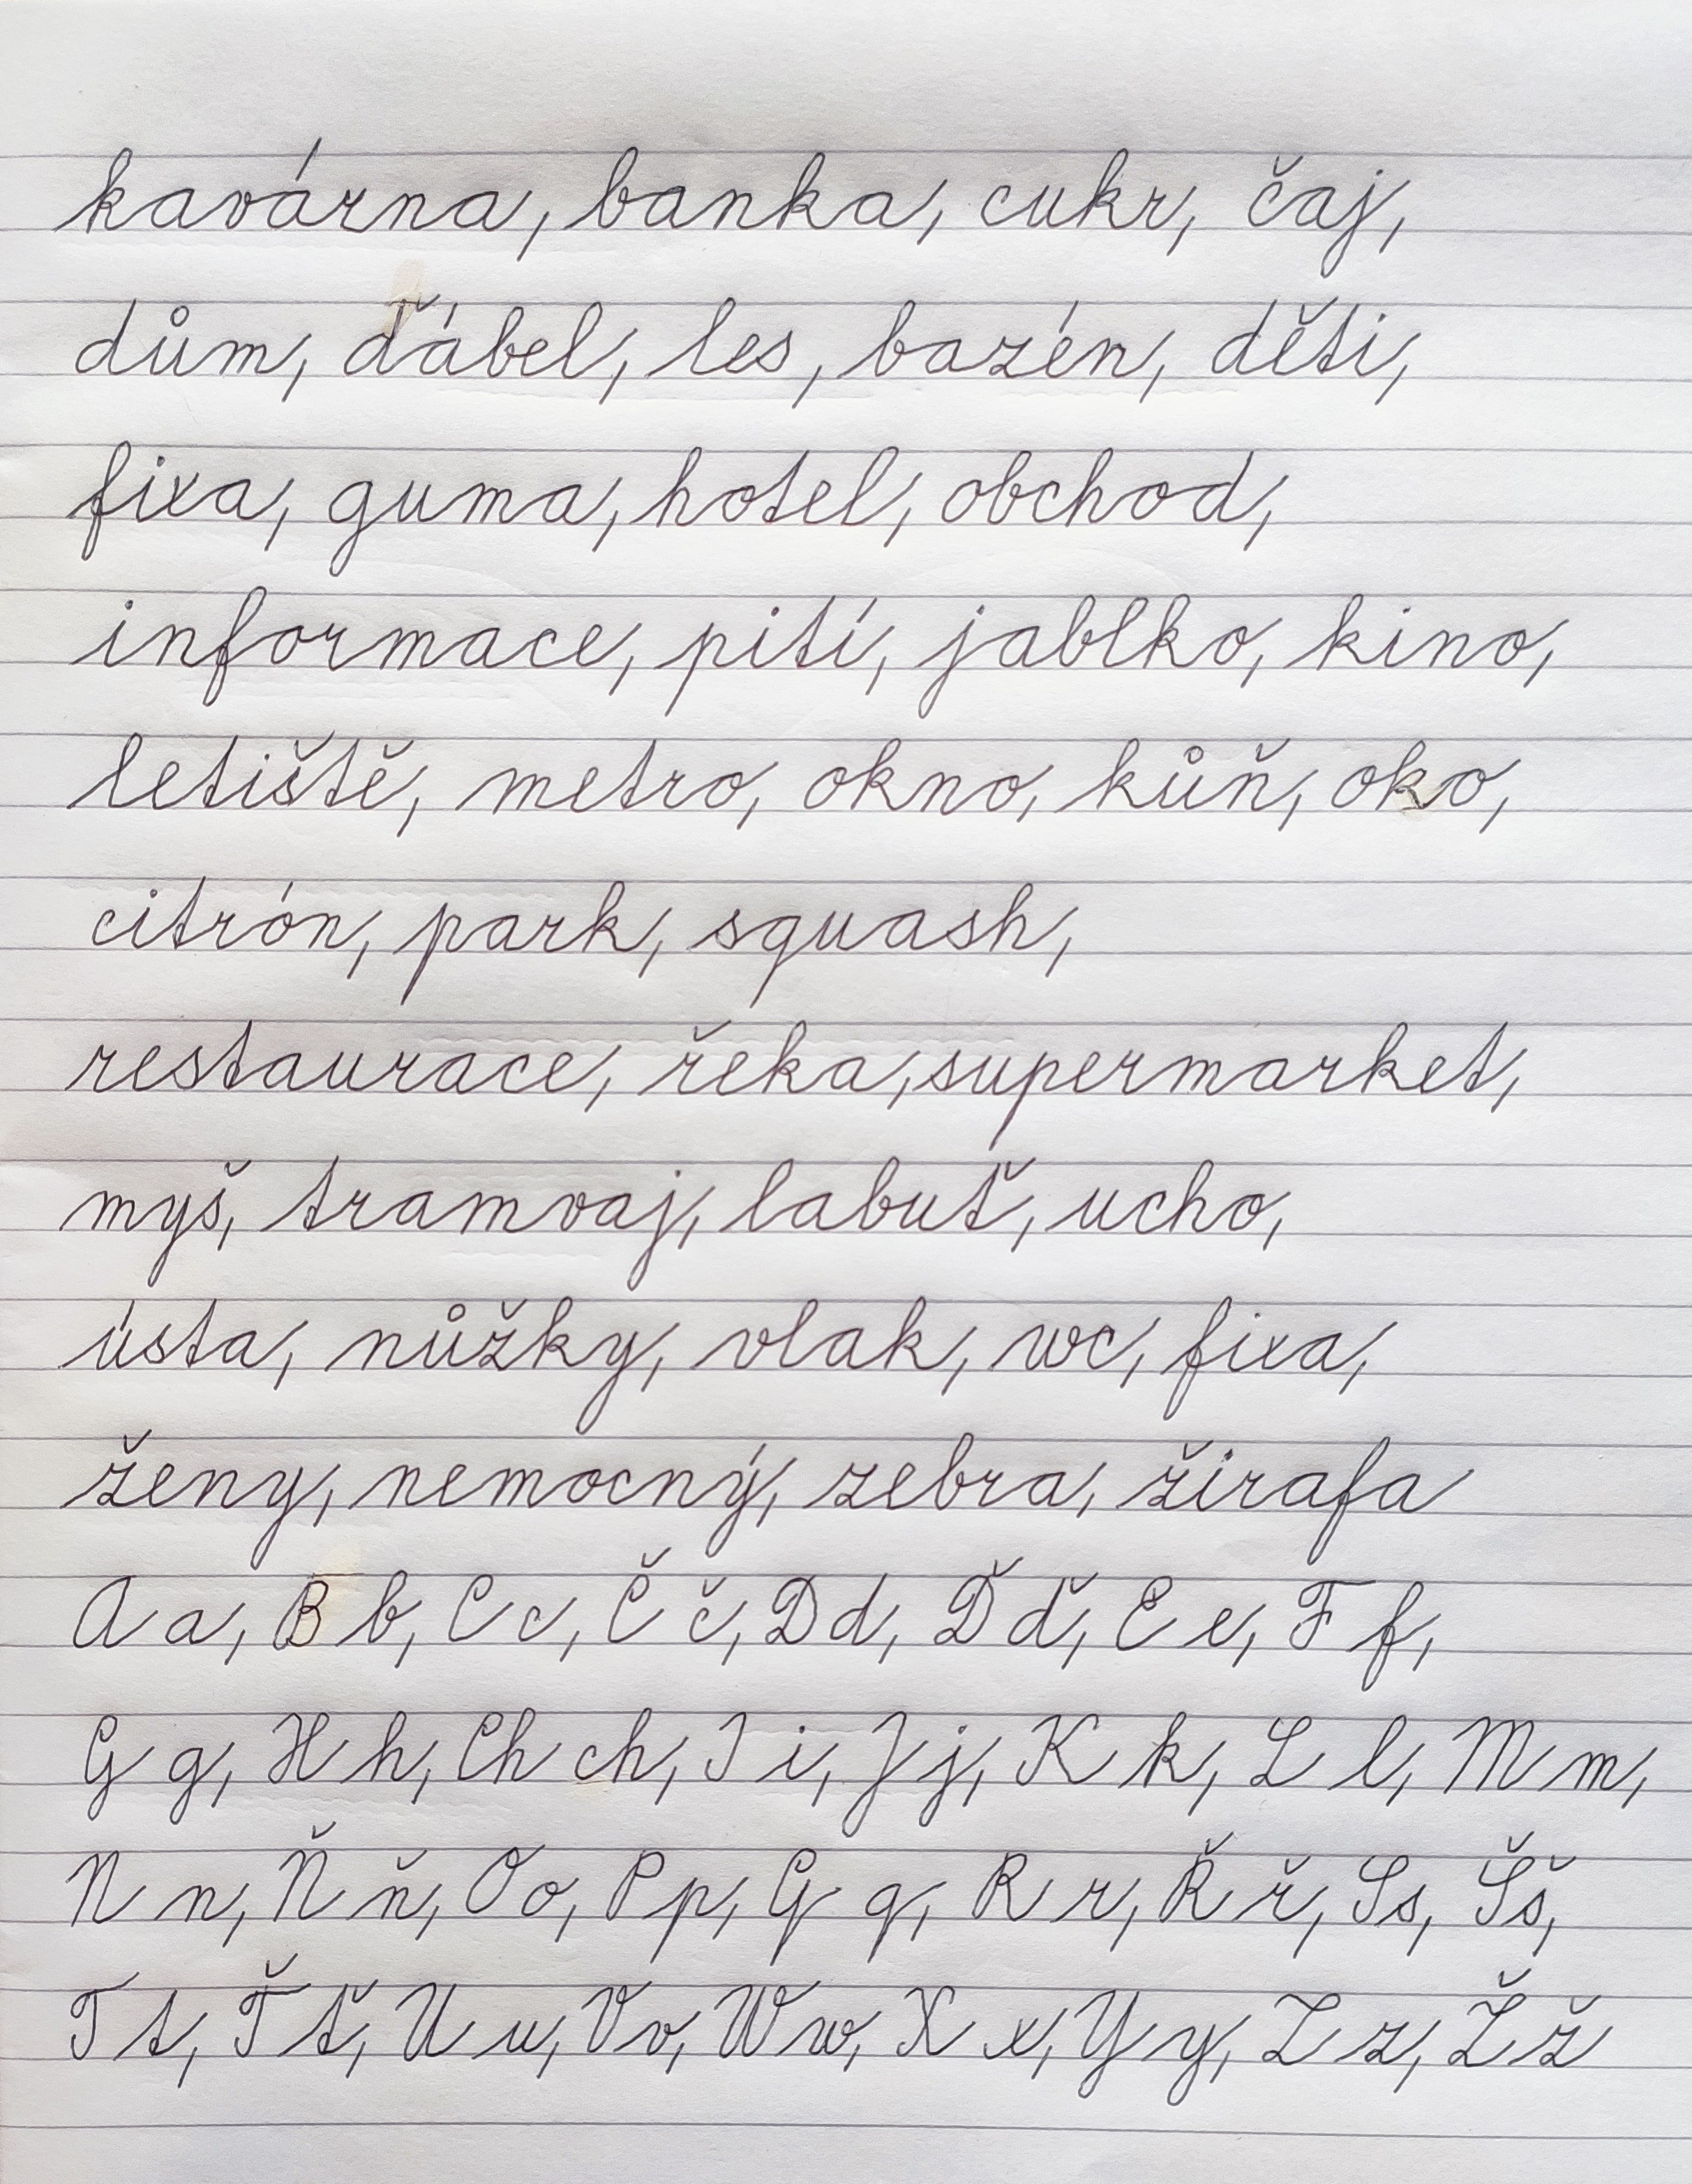 kavárna, banka, cukr, čaj,
dům, ďábel, les, bazén, děti,
fixa, guma, hotel, obchod,
informace, pití, jablko, kino,
letiště, metro, okno, kůň, oko,
citrón, park, squash,
restaurace, řeka, supermarket,
myš, tramvaj, labuť, ucho,
ústa, nůžky, vlak, wc, fixa,
ženy, nemocný, zebra, žirafa
A a, B b, C c, Č č, D d, Ď ď, E e, F f,
G g, H h, Ch ch, I i, J j, K k, L l, M m,
N n, Ň ň, O o, P p, Q q, R r, Ř ř, S s, Š š,
T t, Ť ť, U u, V v, W w, X x, Y y, Z z, Ž ž